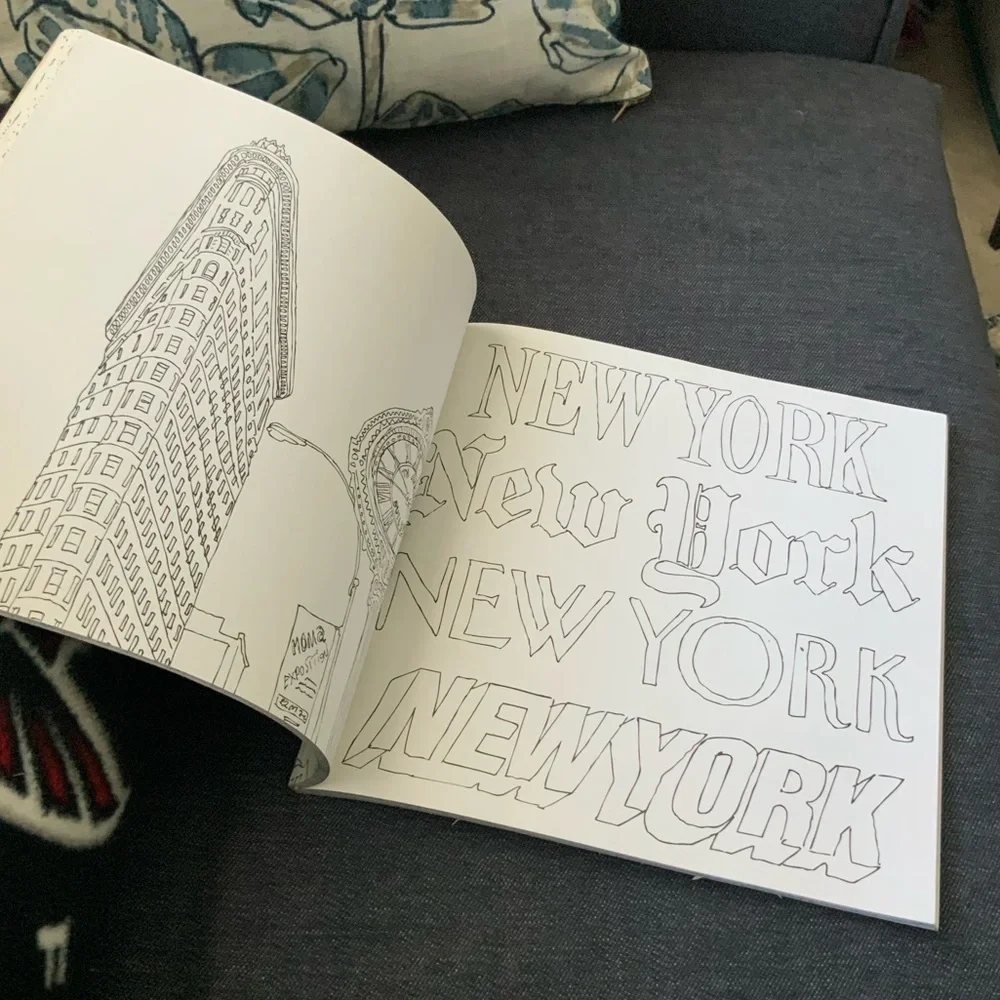 MOMA
EXPOSITION
NEW YORK
New York
NEW YORK
NEW YORK